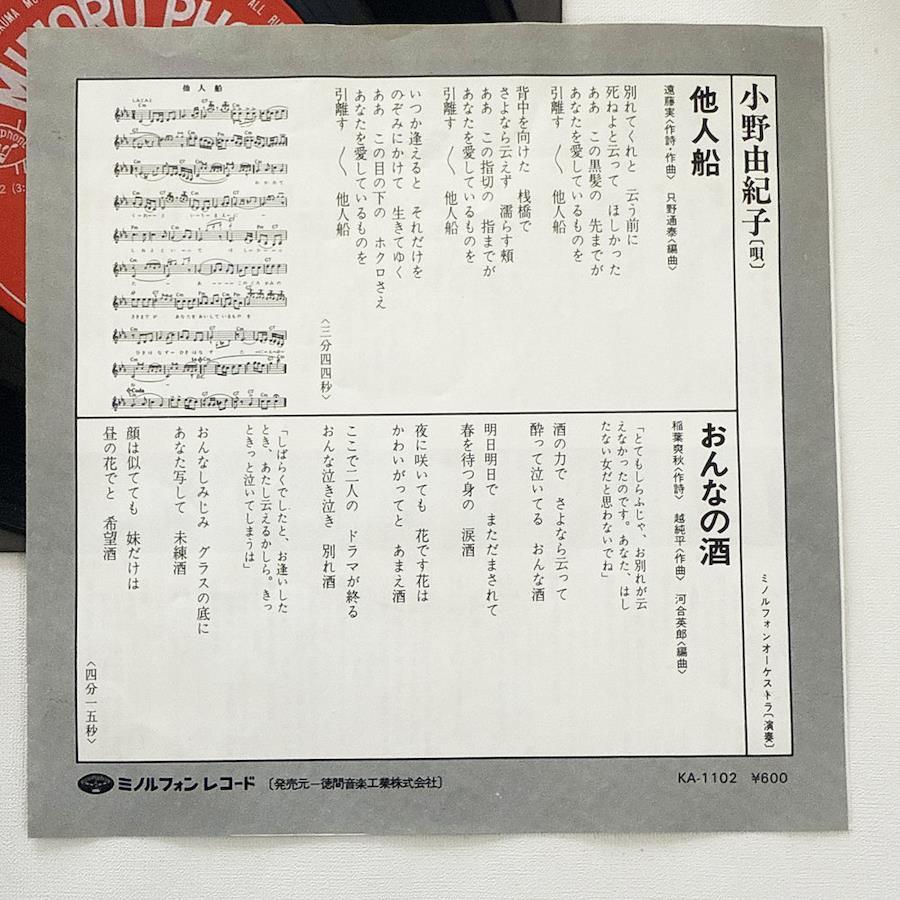 小野由紀子〔唄〕
ミノルフォンオーケストラ〔演奏〕
他人船
遠藤実〈作詩・作曲〉 只野通泰〈編曲〉
別れてくれと 云う前に
死ねよと云って ほしかった
ああ この黒髪の 先までが
あなたを愛しているものを
引離す 〱 他人船
背中を向けた 桟橋で
さよなら云えず 濡らす頬
ああ この指切の 指までが
あなたを愛しているものを
引離す 〱 他人船
いつか逢えると それだけを
のぞみにかけて 生きてゆく
ああ この目の下の ホクロさえ
あなたを愛しているものを
引離す 〱 他人船
〈三分四四秒〉
他人船
おんなの酒
稲葉爽秋〈作詩〉 越純平〈作曲〉 河合英郎〈編曲〉
「とてもしらふじゃ、お別れが云
えなかったのです。あなた、はし
たない女だと思わないでね」
酒の力で さよなら云って
酔って泣いてる おんな酒
明日明日で まただまされて
春を待つ身の 涙酒
夜に咲いても 花です花は
かわいがってと あまえ酒
ここで二人の ドラマが終る
おんな泣き泣き 別れ酒
「しばらくでしたと、お逢いした
とき、あたし云えるかしら。きっ
ときっと泣いてしまうは」
おんなしみじみ グラスの底に
あなた写して 未練酒
顔は似てても 妹だけは
昼の花でと 希望酒
〈四分一五秒〉
ミノルフォン レコード 〔発売元―徳間音楽工業株式会社〕
KA-1102 ¥600
MINORU PHO